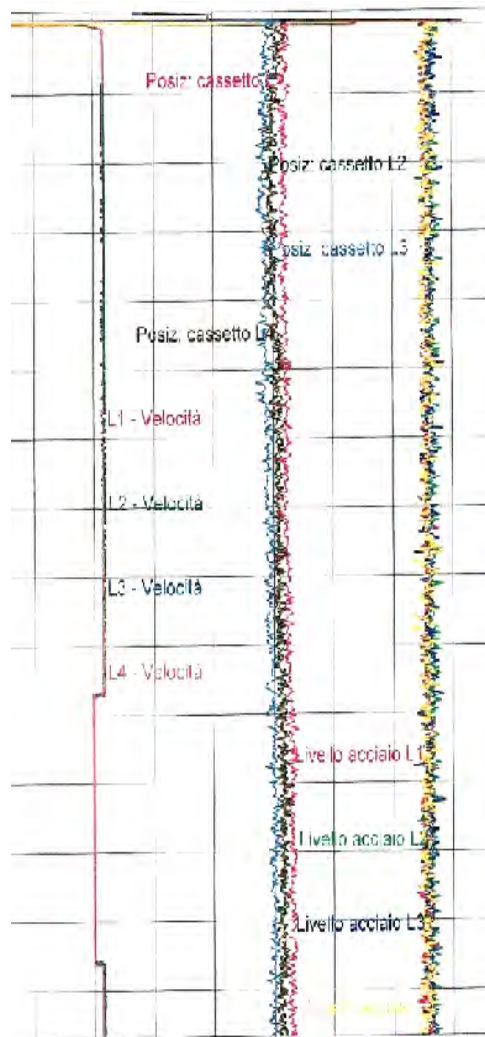 Posiz: cassetto
Posiz: cassetto L2
Posiz: cassetto L3
Posiz: cassetto L4
L1 - Velocità
L2 - Velocità
L3 - Velocità
L4 - Velocità
Livello acciaio L1
Livello acciaio L2
Livello acciaio L3